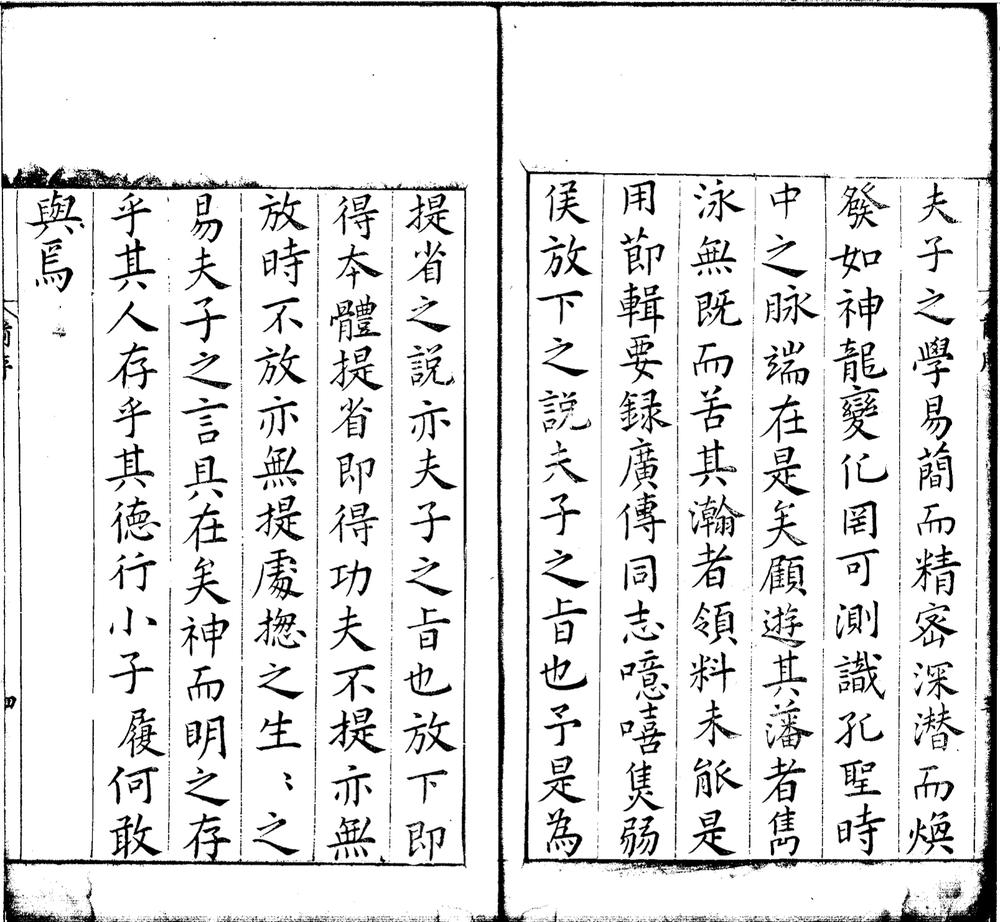 夫子之學易蕳而精密深潜而煥
發如神龍變化罔可測識孔聖時
中之脉端在是矣顧遊其藩者雋
泳無既而苦其瀚者領料未能是
用節輯要録廣傳同志噫嘻雋弱
俟放下之説夫子之旨也予是為
提省之説亦夫子之旨也放下即
得夲體提省即得功夫不提亦無
放時不放亦無提處揔之生〻之
易夫子之言具在矣神而明之存
乎其人存乎其德行小子履何敢
與焉
四